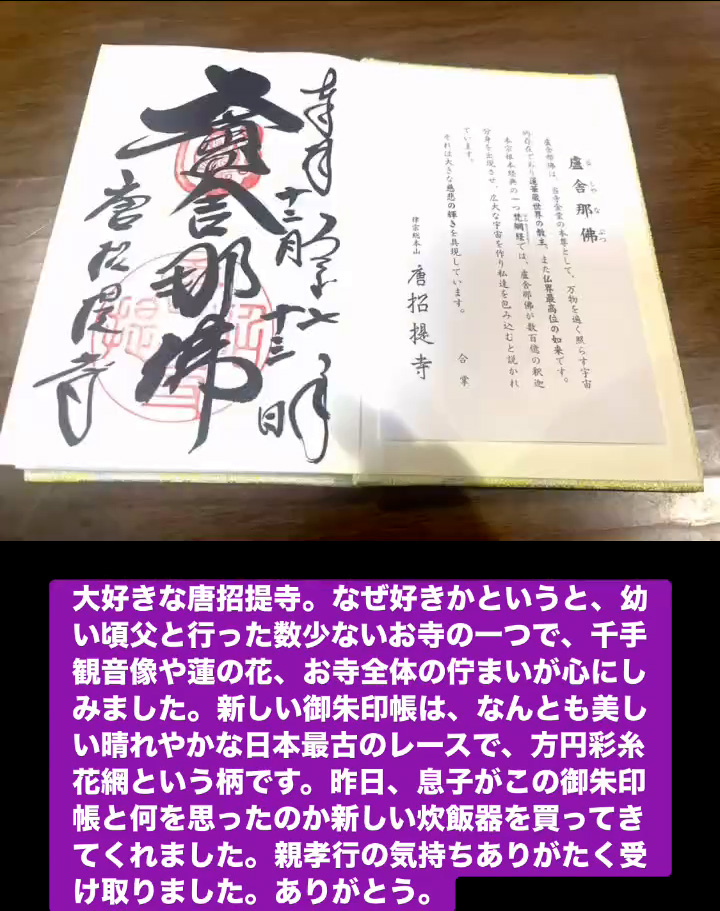 盧舎那佛
るしゃなぶつ
盧舎那佛は、当寺金堂の本尊として、万物を遍く照らす宇宙
的存在であり蓮華蔵世界の教主、また仏界最高位の如来です。
本宗根本経典の一つ梵網経では、盧舎那佛が数百億の釈迦
分身を出現させ、広大な宇宙を作り私達を包み込むと説かれ
ています。
それは大きな慈悲の輝きを具現しています。
合掌
律宗総本山 唐招提寺
奉拝 令和七年
十二月十三日
盧舎那佛
唐招提寺
大好きな唐招提寺。なぜ好きかというと、幼
い頃父と行った数少ないお寺の一つで、千手
観音像や蓮の花、お寺全体の佇まいが心にし
みました。新しい御朱印帳は、なんとも美し
い晴れやかな日本最古のレースで、方円彩糸
花網という柄です。昨日、息子がこの御朱印
帳と何を思ったのか新しい炊飯器を買ってき
てくれました。親孝行の気持ちありがたく受
け取りました。ありがとう。